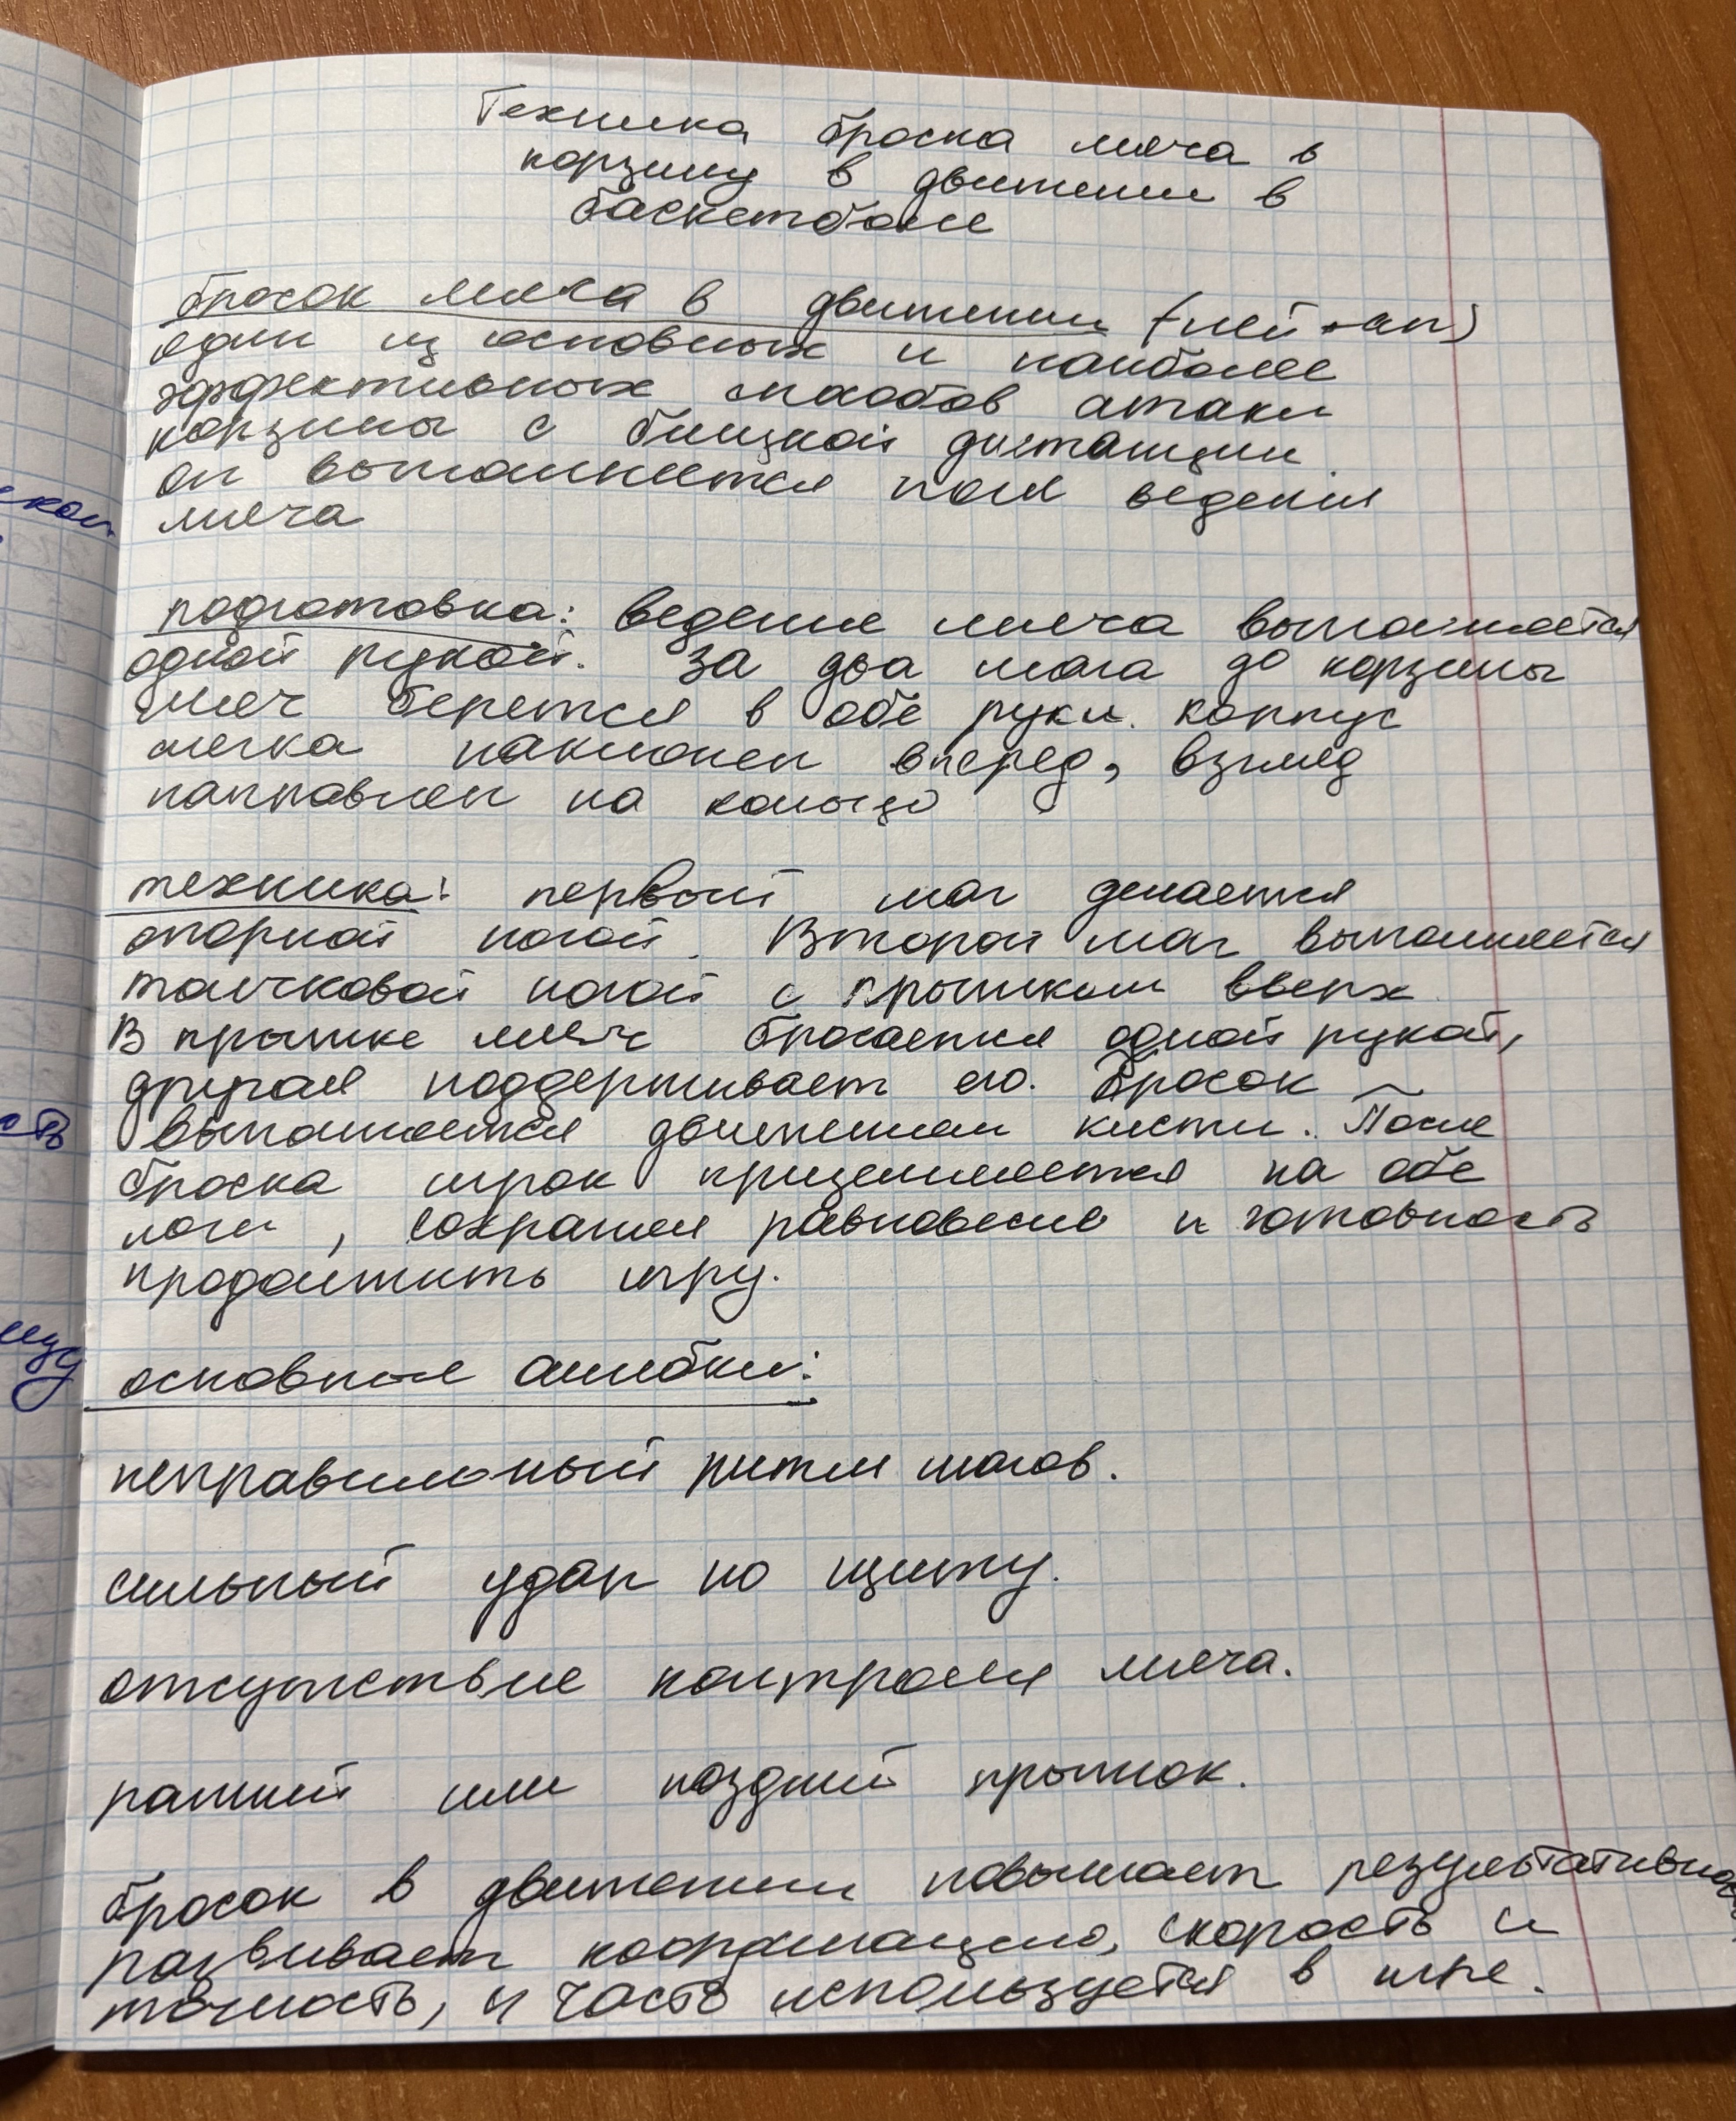 Техника броска мяча в
корзину в движении в
баскетболе
бросок мяча в движении (лей-ап)
один из основных и наиболее
эффективных способов атаки
корзины с близкой дистанции.
он выполняется после ведения
мяча
подготовка: ведение мяча выполняется
одной рукой. За два шага до корзины
мяч берется в обе руки. корпус
слегка наклонен вперед, взгляд
направлен на кольцо
техника: первый шаг делается
опорной ногой. Второй шаг выполняется
толчковой ногой с прыжком вверх
В прыжке мяч бросается одной рукой,
другая поддерживает его. Бросок
выполняется движением кисти. После
броска игрок приземляется на обе
ноги, сохраняя равновесие и готовность
продолжить игру.
основные ошибки:
неправильный ритм шагов.
сильный удар по щиту.
отсутствие контроля мяча.
ранний или поздний прыжок.
бросок в движении повышает результативность
развивает координацию, скорость и
точность, и часто используется в игре.